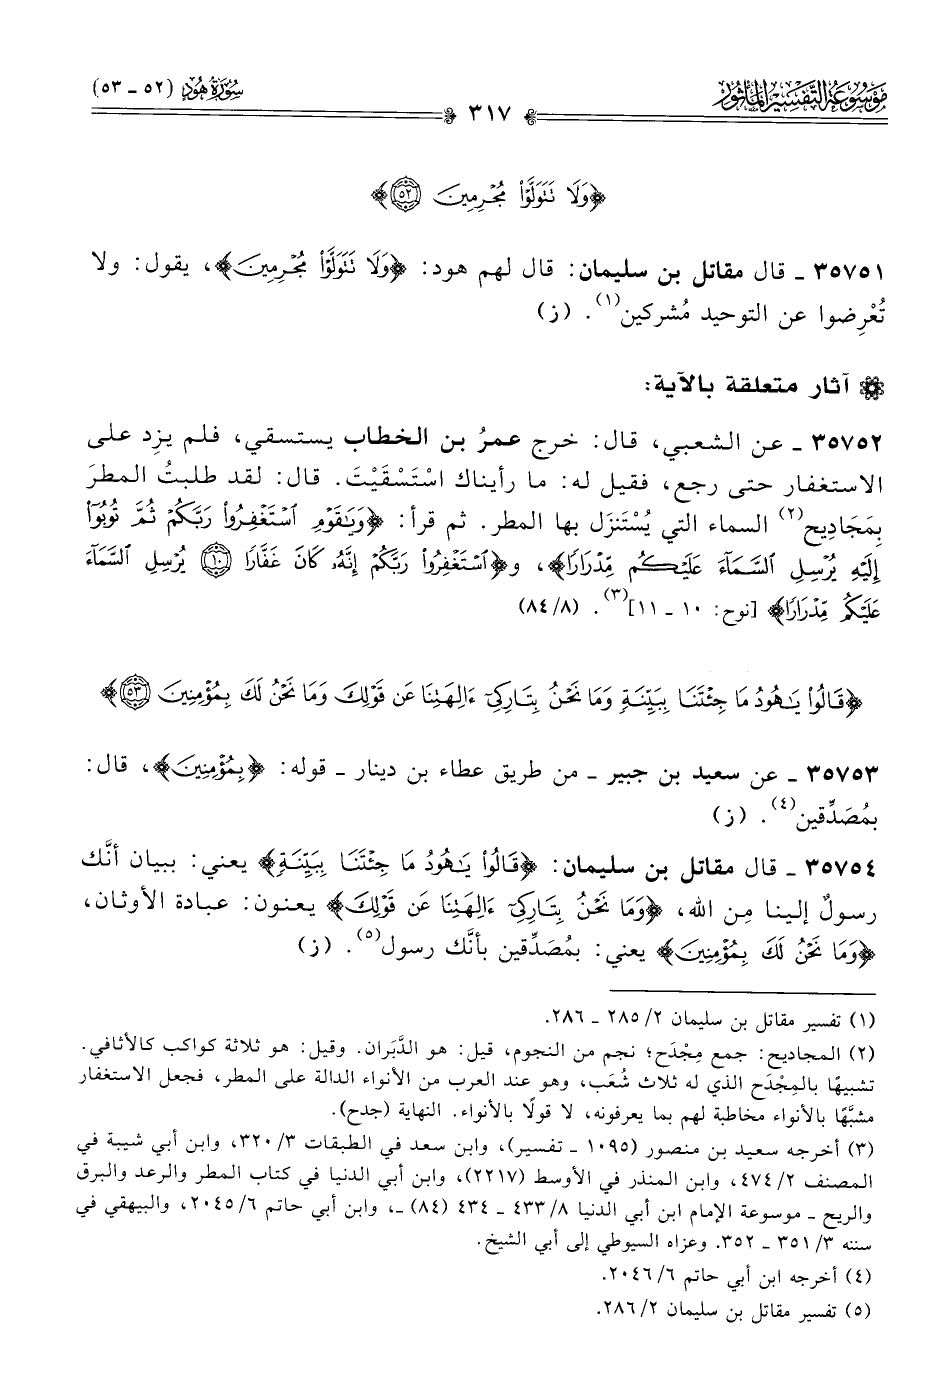 مَوْسُوعَةُ التَّفْسِيرِ المَأْثُورِ
سُورَةُ هُودٍ (٥٢ ـ ٥٣)
٣١٧
﴿وَلَا تَتَوَلَّوْا۟ مُجْرِمِينَ ٥٢﴾
٣٥٧٥١ ـ قال مقاتل بن سليمان: قال لهم هود: ﴿وَلَا تَتَوَلَّوْا۟ مُجْرِمِينَ﴾، يقول: ولا
تُعْرِضوا عن التوحيد مُشركين(١). (ز)
آثار متعلقة بالآية:
٣٥٧٥٢ ـ عن الشعبي، قال: خرج عمرُ بن الخطاب يستسقي، فلم يزِد على
الاستغفار حتى رجع، فقيل له: ما رأيناك اسْتَسْقَيْتَ. قال: لقد طلبتُ المطرَ
بِمَجَادِيح(٢) السماء التي يُسْتَنزَل بها المطر. ثم قرأ: ﴿وَيَٰقَوْمِ ٱسْتَغْفِرُوا۟ رَبَّكُمْ ثُمَّ تُوبُوٓا۟
إِلَيْهِ يُرْسِلِ ٱلسَّمَآءَ عَلَيْكُم مِّدْرَارًا﴾، و﴿ٱسْتَغْفِرُوا۟ رَبَّكُمْ إِنَّهُۥ كَانَ غَفَّارًا ١٠ يُرْسِلِ ٱلسَّمَآءَ
عَلَيْكُم مِّدْرَارًا﴾ [نوح: ١٠ ـ ١١](٣). (٨/ ٨٤)
﴿قَالُوا۟ يَٰهُودُ مَا جِئْتَنَا بِبَيِّنَةٍ وَمَا نَحْنُ بِتَارِكِىٓ ءَالِهَتِنَا عَن قَوْلِكَ وَمَا نَحْنُ لَكَ بِمُؤْمِنِينَ ٥٣﴾
٣٥٧٥٣ ـ عن سعيد بن جبير ـ من طريق عطاء بن دينار ـ قوله: ﴿بِمُؤْمِنِينَ﴾، قال:
بمُصَدِّقين(٤). (ز)
٣٥٧٥٤ ـ قال مقاتل بن سليمان: ﴿قَالُوا۟ يَٰهُودُ مَا جِئْتَنَا بِبَيِّنَةٍ﴾ يعني: ببيان أنَّك
رسولٌ إلينا مِن الله، ﴿وَمَا نَحْنُ بِتَارِكِىٓ ءَالِهَتِنَا عَن قَوْلِكَ﴾ يعنون: عبادة الأوثان،
﴿وَمَا نَحْنُ لَكَ بِمُؤْمِنِينَ﴾ يعني: بمُصَدِّقين بأنَّك رسول(٥). (ز)
(١) تفسير مقاتل بن سليمان ٢/ ٢٨٥ ـ ٢٨٦.
(٢) المجاديح: جمع مِجْدَح؛ نجم من النجوم، قيل: هو الدَّبَران. وقيل: هو ثلاثة كواكب كالأثافي.
تشبيهًا بالمِجْدَح الذي له ثلاث شُعَب، وهو عند العرب من الأنواء الدالة على المطر، فجعل الاستغفار
مشبَّهًا بالأنواء مخاطبة لهم بما يعرفونه، لا قولًا بالأنواء. النهاية (جدح).
(٣) أخرجه سعيد بن منصور (١٠٩٥ ـ تفسير)، وابن سعد في الطبقات ٣/ ٣٢٠، وابن أبي شيبة في
المصنف ٢/ ٤٧٤، وابن المنذر في الأوسط (٢٢١٧)، وابن أبي الدنيا في كتاب المطر والرعد والبرق
والريح ـ موسوعة الإمام ابن أبي الدنيا ٨/ ٤٣٣ ـ ٤٣٤ (٨٤) ـ، وابن أبي حاتم ٦/ ٢٠٤٥، والبيهقي في
سننه ٣/ ٣٥١ ـ ٣٥٢. وعزاه السيوطي إلى أبي الشيخ.
(٤) أخرجه ابن أبي حاتم ٦/ ٢٠٤٦.
(٥) تفسير مقاتل بن سليمان ٢/ ٢٨٦.